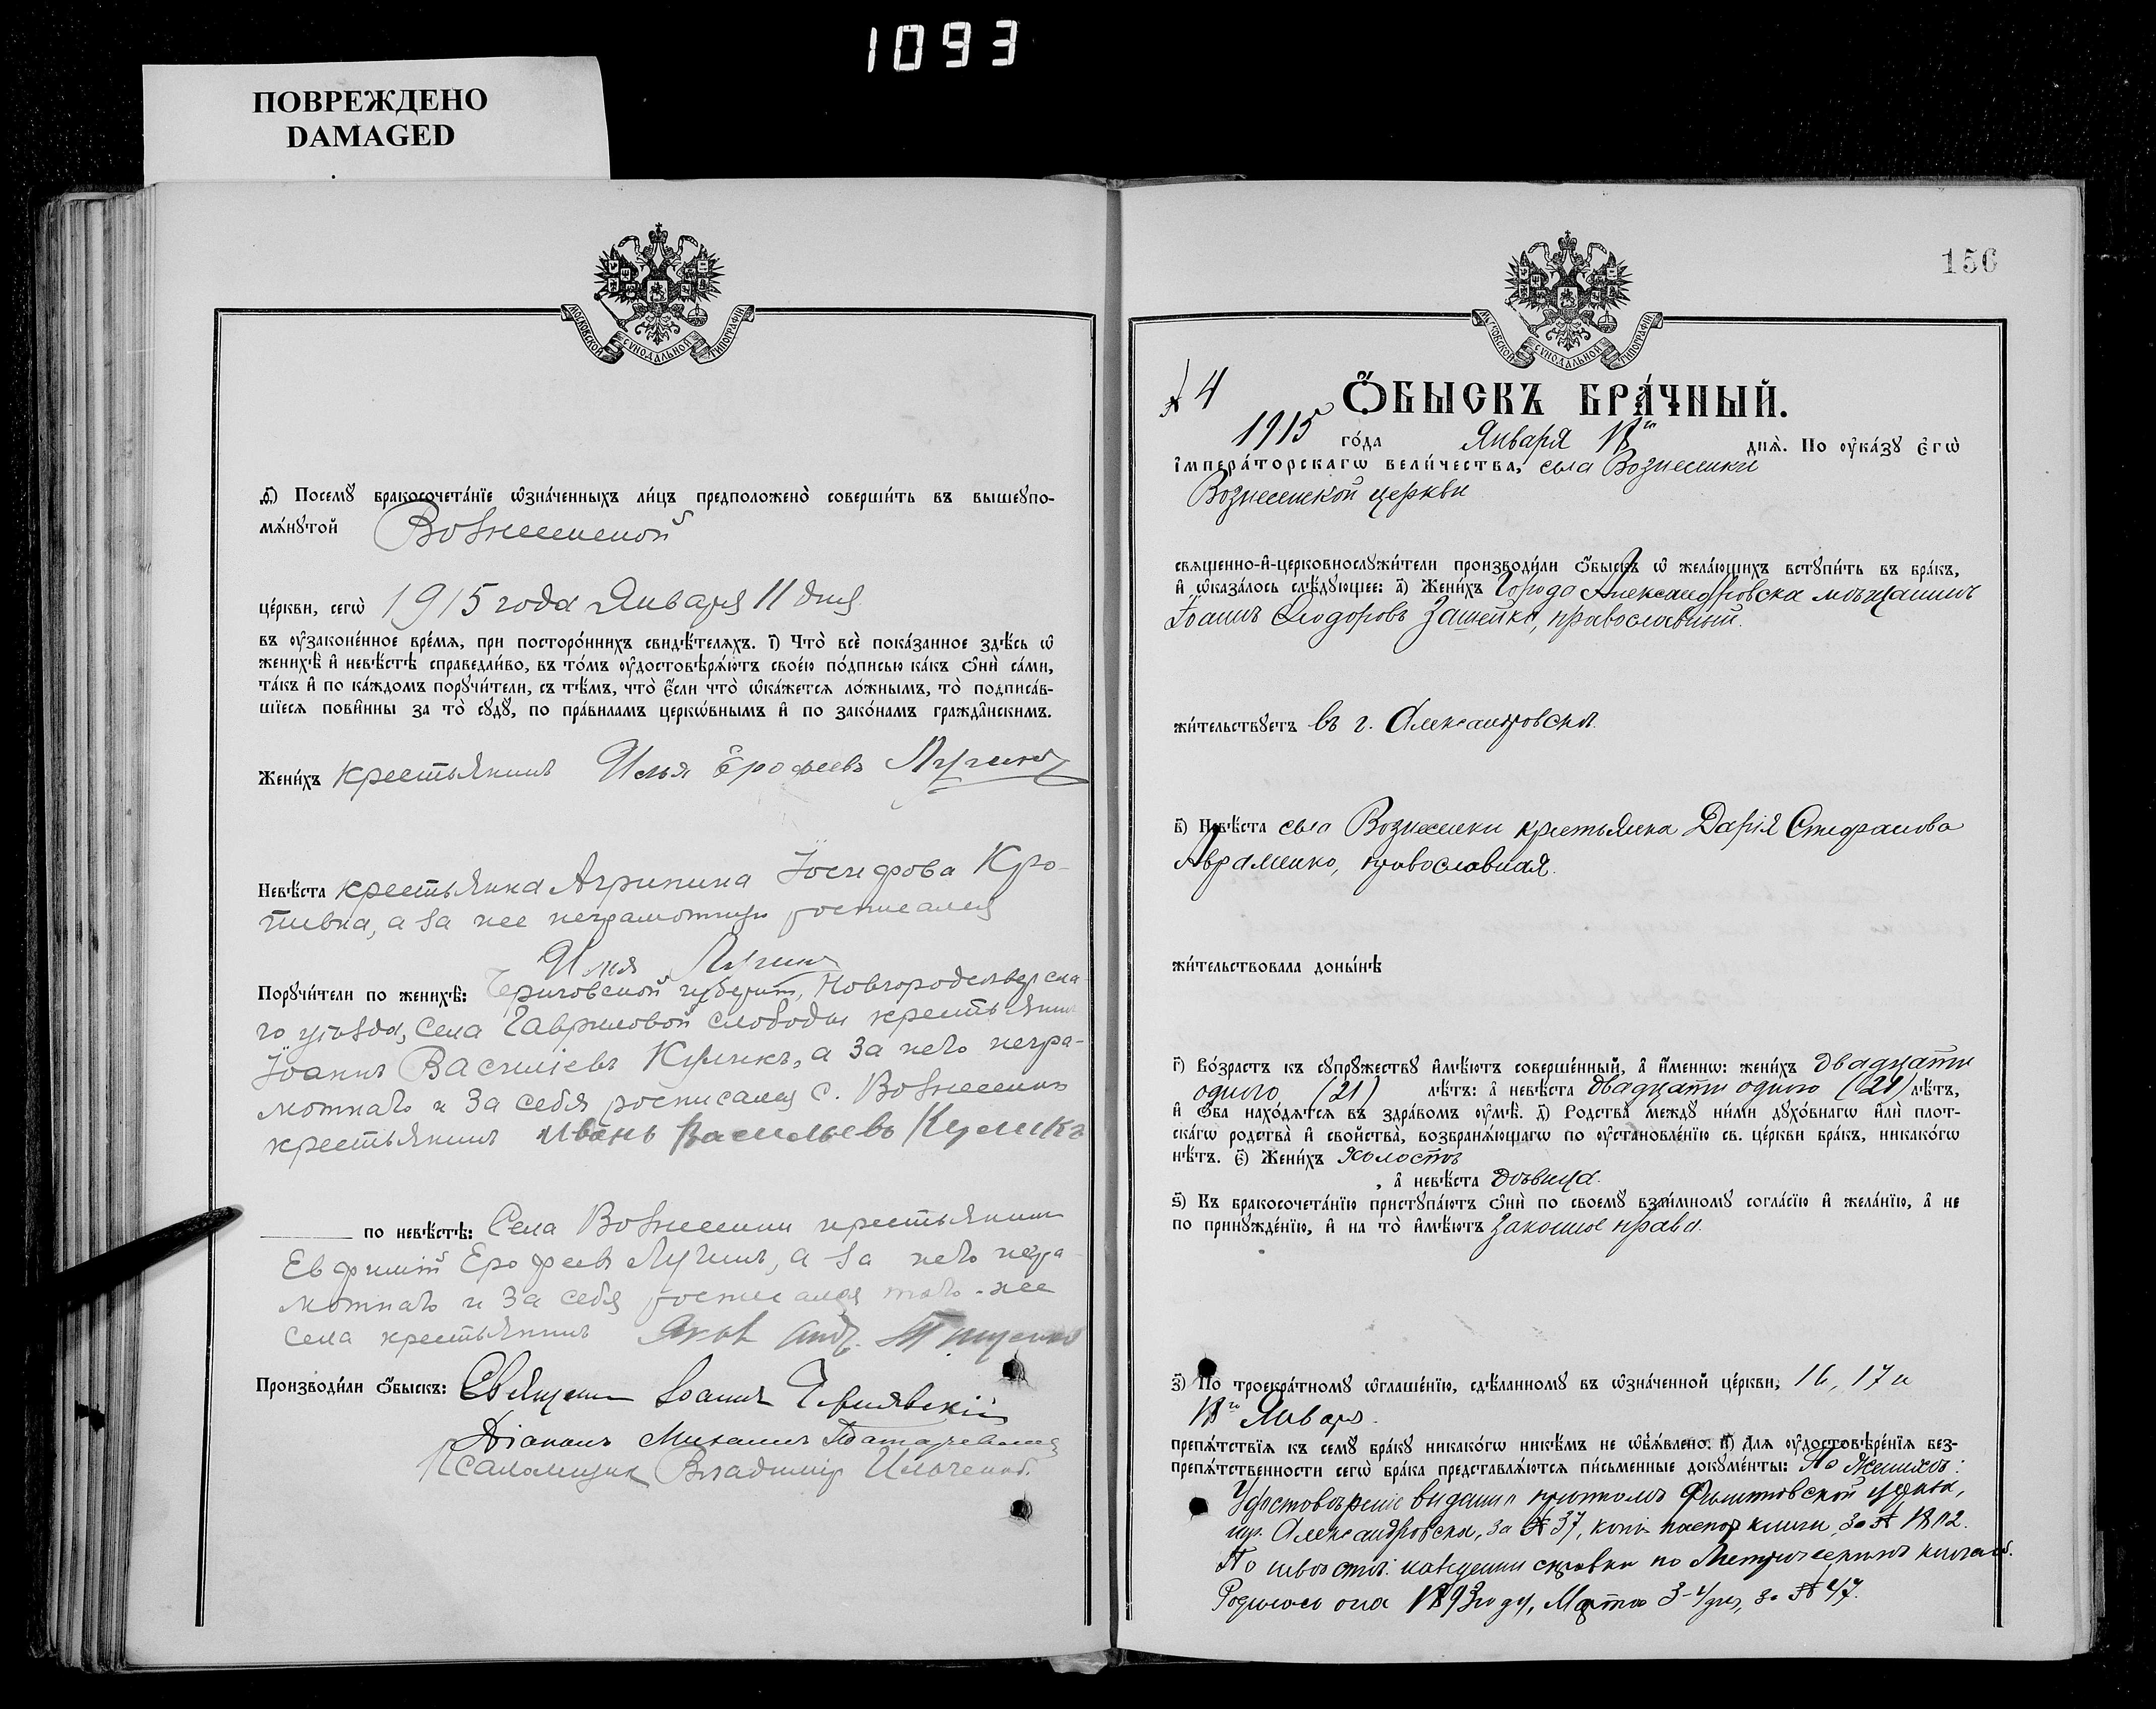 1093
ПОВРЕЖДЕНО
DAMAGED
МОСКОВСКОЙ СѴНОДАЛЬНОЙ ТИПОГРАФІИ
ѳ҃) Посемꙋ бракосочета́нїе ѡ҆зна́ченныхъ ли́цъ предположено̀ соверши́ть въ вышеꙋпо-
мѧ́нꙋтой Вознесенской
це́ркви, сегѡ̀ 1915 года Января 11 дня
въ ᲂу҆законе́нное вре́мѧ, при посторо́ннихъ свидѣ́телѧхъ. і҃) Что̀ всѐ пока́занное здѣ́сь ѡ҆
женихѣ̀ и҆ невѣ́стѣ справедли́во, въ то́мъ ᲂу҆достовѣрѧ́ютъ свое́ю по́дписью ка́къ ѻ҆нѝ са́ми,
та́къ и҆ по ка́ждомъ порꙋчи́тели, съ тѣ́мъ, что̀ є҆́сли что̀ ѡ҆ка́жетсѧ ло́жнымъ, то̀ подписа́в-
шїесѧ пови́нны за то̀ сꙋдꙋ̀, по пра́виламъ церкѡ́внымъ и҆ по зако́намъ гражда́нскимъ.
Жени́хъ крестьянинъ Илья Ерофеевъ
Невѣ́ста крестьянка Агрипина Іосифова Кро-
а за нее неграмотную росписался
Илья
Порꙋчи́тели по женихѣ̀: Черниговской губерніи, Новгородсѣверска
го уѣзда, села Гавриловой слободы крестьянин
Іоаннъ Васильевъ Куликъ, а за него негра-
мотнаго и за себя росписался с. Вознесенки
крестьянинъ Иванъ Васильевъ Куликъ
по невѣ́стѣ: Села Вознесенки крестьянинъ
Евфимій Ерофеевъ а за него негра
мотнаго и за себя росписался того-же
села крестьянинъ Яковъ Анд.
Производи́ли ѻ҆́быскъ: Священникъ Іоаннъ Чернявскій
Діаконъ Михаилъ
Псаломщикъ Владимір Ильченко.
156
МОСКОВСКОЙ СѴНОДАЛЬНОЙ ТИПОГРАФІИ
№ 4
Ѻ҆́БЫСКЪ БРА́ЧНЫЙ.
1915 го́да Января 18го днѧ̀. По ᲂу҆ка́зꙋ є҆гѡ̀
і҆мпера́торскагѡ вели́чества, села Вознесенки
Вознесенской церкви
свѧщенно-и҆-церковнослꙋжи́тели производи́ли ѻ҆́быскъ ѡ҆ жела́ющихъ встꙋпи́ть въ бра́къ,
и҆ ѡ҆каза́лось слѣ́дꙋющее: а҃) Жени́хъ Города Александровска мѣщанинъ
Іоаннъ Ѳеодоровъ Зашейко, православный.
жи́тельствꙋетъ въ г. Александровскѣ.
в҃) Невѣ́ста села Вознесенки крестьянка Дарія Стефанова
Авраменко, православная.
жи́тельствовала доны́нѣ
г҃) Во́зрастъ къ сꙋпрꙋ́жествꙋ и҆мѣ́ютъ соверше́нный, а҆ и҆́менно: жени́хъ двадцати
одного (21) лѣ́тъ: а҆ невѣ́ста двадцати одного (21) лѣ́тъ,
и҆ ѻ҆́ба нахо́дѧтсѧ въ здра́вомъ ᲂу҆мѣ̀. д҃) Родства̀ междꙋ ни́ми дꙋхо́внагѡ и҆лѝ плот-
ска́гѡ родства̀ и҆ свойства̀, возбранѧ́ющагѡ по ᲂу҆становле́нїю св. це́ркви бра́къ, никако́гѡ
нѣ́тъ. є҃) Жени́хъ холостъ
, а҆ невѣ́ста дѣвица.
ѕ҃) Къ бракосочета́нїю пристꙋпа́ютъ ѻ҆нѝ по своемꙋ̀ взаи́мномꙋ согла́сїю и҆ жела́нїю, а҆ не
по принꙋжде́нїю, и҆ на то̀ и҆мѣ́ютъ законное право.
з҃) По троекра́тномꙋ ѡ҆глаше́нїю, сдѣ́ланномꙋ въ ѡ҆зна́ченной це́ркви, 16, 17 и
18го Января.
препѧ́тствїѧ къ семꙋ̀ бра́кꙋ никако́гѡ никѣ́мъ не ѡ҆б̾ѧ́влено. и҃) Длѧ ᲂу҆достовѣре́нїѧ без-
препѧ́тственности сегѡ̀ бра́ка представлѧ́ютсѧ пи́сьменные докꙋме́нты: По Женихѣ:
Удостовѣреніе выдано причтомъ церкви,
гор. Александровска, за № 37, копія паспор. книги, за № 1812.
По невѣстѣ: наведены справки по Метрическимъ книгамъ.
Родилась она 1893 году, Марта 3-4 дня, за № 47.